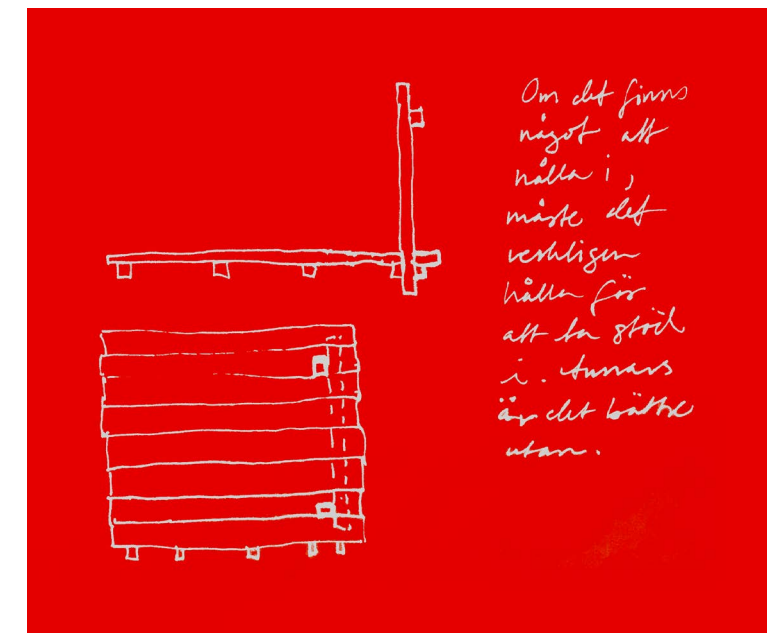 Om det finns
något att
hålla i,
måste det
verkligen
hålla för
att ta stöd
i. Annars
är det bättre
utan.